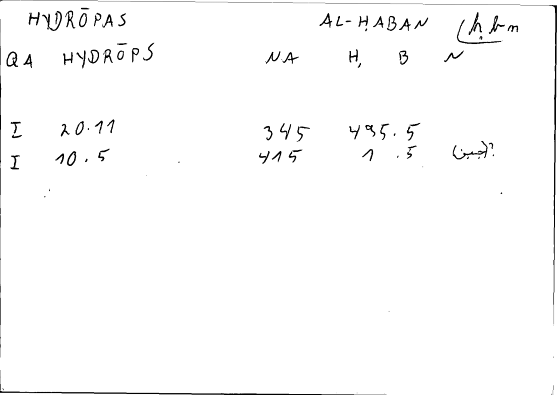 HYDRŌPAS AL-ḤABAN ḥbn
QA HYDRŌPS NA Ḥ B N
I 20.11 345 495.5
I 10.5 415 1.5 (جبين)?